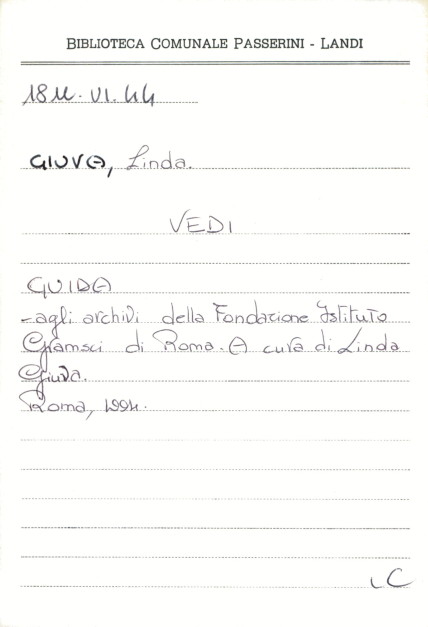 BIBLIOTECA COMUNALE PASSERINI - LANDI
18 M. VI. 44
GIUVA, Linda.
VEDI
GUIDA
-agli archivi della Fondazione Istituto
Gramsci di Roma. A cura di Linda
Giuva.
Roma, 1994.